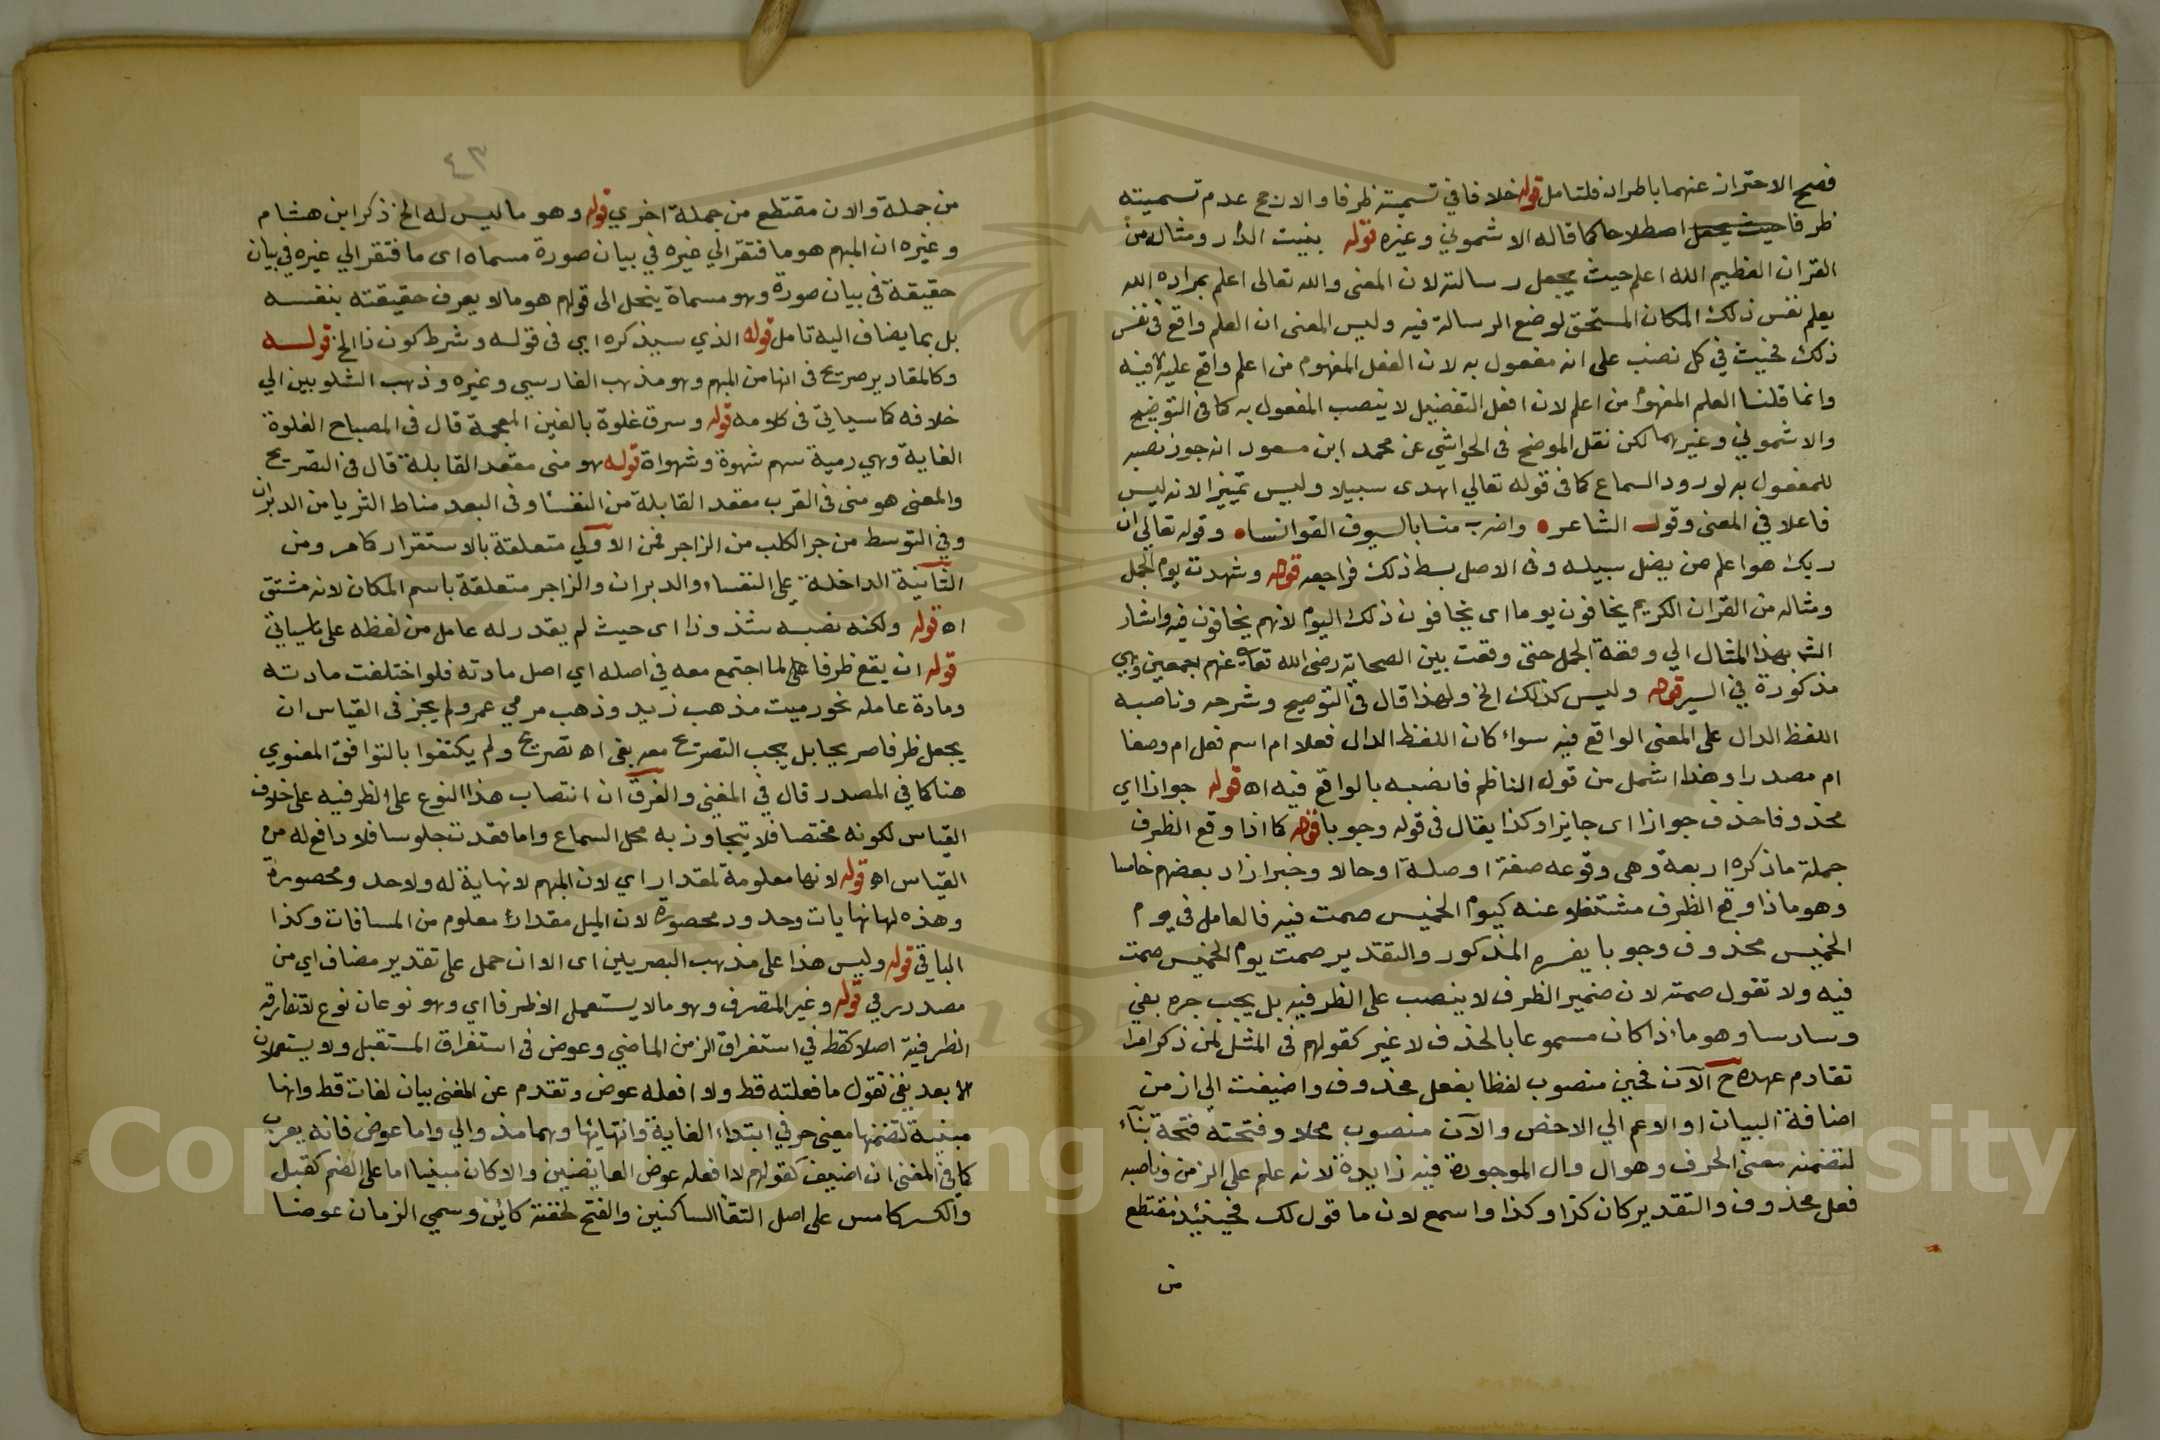 فصح الاحتراز عنهما باطراد فلتامل قوله خلافا في تسميته ظرفا والارجح عدم تسميته
ظرفا حيث يجعل اصطلاحا كما قاله الاشموني وغيره قوله بنيت الدار ومثاله من
القران العظيم الله اعلم حيث يجعل رسالته لان المعنى والله تعالى اعلم بمراده الله
يعلم نفس ذلك المكان المستحق لوضع الرسالة فيه وليس المعنى ان العلم واقع في نفس
ذلك فحيث في كل نصب على انه مفعول به لان الفعل المفهوم من اعلم واقع عليه لا فيه
وانما قلنا العلم المفهوم من اعلم لان افعل التفضيل لا ينصب المفعول به كما في التوضيح
والاشموني وغيرهما لكن نقل الموضح في الحواشي عن محمد ابن مسعود انه جوز نصبه
للمفعول به لورود السماع كما في قوله تعالي اهدى سبيلا وليس تمييزا لانه ليس
فاعلا في المعنى وقول الشاعر • واضرب منا بالسيوف القوانسا • وقوله تعالي ان
ربك هو اعلم من يضل سبيله وفى الاصل بسط ذلك فراجعه قوله وشهدت يوم الجمل
ومثاله من القران الكريم يخافون يوما اى يخافون ذلك اليوم لانهم يخافون فيه واشار
الش بهذا المثال الي وقعة الجمل حتى وقعت بين الصحابة رضى الله تعالى عنهم اجمعين وهي
مذكورة في السير قوله وليس كذلك الخ ولهذا قال في التوضيح وشرحه وناصبه
اللفظ الدال على المعنى الواقع فيه سواء كان اللفظ الدال فعلا ام اسم فعل ام وصفا
ام مصدرا وهذا اشمل من قول الناظم فانصبه بالواقع فيه اه قوله جوازا اي
محذوفا حذف جوازا اى جايزا وكذا يقال فى قوله وجوبا قوله كما اذا وقع الظرف
جملة ما ذكره اربعة وهى وقوعه صفة او صلة او حالا وخبرا زاد بعضهم خامسا
وهو ما اذا وقع الظرف مشتغلا عنه كيوم الخميس صمت فيه فالعامل في يوم
الخميس محذوف وجوبا يفسره المذكور والتقدير صمت يوم الخميس صمت
فيه ولا تقول صمته لان ضمير الظرف لا ينصب على الظرفية بل يجب جره بفي
وسادسا وهو ما اذا كان مسموعا بالحذف لا غير كقولهم في المثل لمن ذكر امرا
تقادم عهده ح الآن فحين منصوب لفظا بفعل محذوف واضيفت الي از من
اضافة البيان او الاعم الي الاخص والآن منصوب محلا وفتحته فتحة بنآء
لتضمنه معنى الحرف وهوال وال الموجودة فيه زايدة لانه علم على الزمن وناصبه
فعل محذوف والتقدير كان كذا وكذا واسمع لان ما قول لك فحينئذ مقتطع
من
٤٣
من جملة والان مقتطع من جملة اخري قوله وهو ما ليس له الخ ذكر ابن هشام
وغيره ان المبهم هو ما فتقر الي غيره في بيان صورة مسماه اى ما فتقر الي غيره في بيان
حقيقة في بيان صورة وهو مسماة ينحل الى قولهم هو ما لا يعرف حقيقته بنفسه
بل بما يضاف اليه تامل قوله الذي سيذكره ابي فى قوله وشرط كون ذا الخ قوله
وكالمقادير صريح فى انها من المبهم وهو مذهب الفارسي وغيره وذهب الشلوبين الي
خلافه كما سياتي فى كلامه قوله وسرق غلوة بالغين المعجمة قال فى المصباح الغلوة
الغاية وهي رمية سهم شهوة وشهواة قوله هو منى مقعد القابلة قال فى التصريح
والمعنى هو منى في القرب مقعد القابلة من النفسا وفى البعد مناط الثريا من الدبران
وفي التوسط من جر الكلب من الزاجر فمن الاولي متعلقة بالاستقرار كامر ومن
الثانية الداخلة على النفساء والدبران والزاجر متعلقة باسم المكان لانه مشتق
اه قوله ولكنه نصبه شذوذا اى حيث لم يقدر له عامل من لفظه على ما سياتي
قوله ان يقع ظرفا على لما اجتمع معه في اصله اي اصل مادته فلو اختلفت مادته
ومادة عامله نحو رميت مذهب زيد وذهب مرمي عمرو لم يجز فى القياس ان
يجعل ظرفا صريحا بل يجب التصريح معه بفى اه تصريح ولم يكتفوا بالتوافق المعنوي
هنا كما في المصدر قال في المغني والفرق ان انتصاب هذا النوع على الظرفية على خلاف
القياس لكونه مختصا فلا يتجاوز به محل السماع واما قعدت جلوسا فلا دافع له من
القياس اه قوله لانها معلومة لمقدار اي لان المبهم لا نهاية له ولا حد ومحصورة
وهذه لها نهايات وحدود محصورة لان الميل مقدار معلوم من المسافات وكذا
الباقي قوله وليس هذا على مذهب البصريين اى الا ان حمل على تقدير مضاف اي من
مصدر رمي قوله وغير المتصرف وهو ما لا يستعمل الا ظرفا اي وهو نوعان نوع لا تفارقه
الظرفية اصلا كقط في استغراق الزمن الماضي وعوض فى استغراق المستقبل ولا يستعملان
الا بعد نفي تقول ما فعلته قط ولا افعله عوض وتقدم عن المغنى بيان لغات قط وانها
مبنية لتضمنها معنى حرفي ابتداء الغاية وانتهايها وهما مذ والي واما عوض فانه يعرب
كما في المغنى ان اضيف كقولهم لا افعله عوض العايضين والا كان مبنيا اما على الضم كقبل
والكسر كامس على اصل التقا الساكنين والفتح لخفته كاين وسمي الزمان عوضا
Copyright © King Saud University